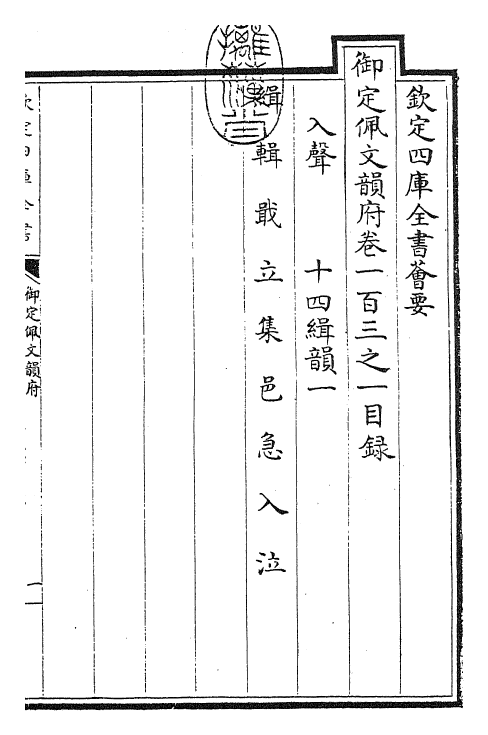 欽定四庫全書薈要
御定佩文韻府卷一百三之一目録
入聲 十四緝韻一
緝 輯 戢 立 集 邑 急 入 泣
欽定四庫全書
御定佩文韻府
一